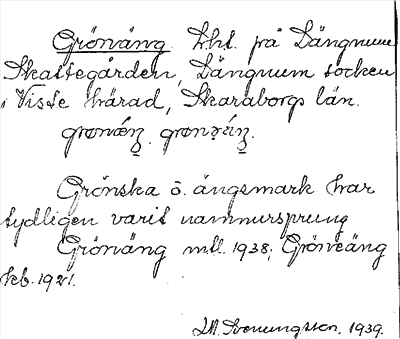 Grönäng. Lht. på Längnum
Skattegården, Längnum socken
i Viste härad, Skaraborgs län.
Grönska o. ängsmark har
tydligen varit namnursprung
Grönäng mtl. 1938; Gröneäng
kb. 1921.
1939.